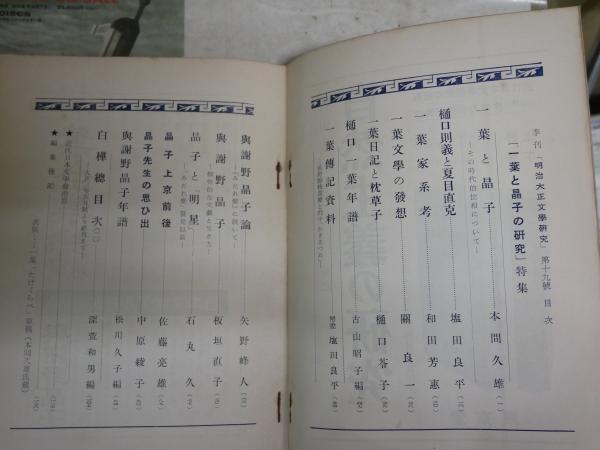 季刊「明治大正文學研究」第十九號 目次
「一葉と晶子の研究」特集
一葉と晶子 本間久雄
―その時代的性格について―
樋口則義と夏目直克 塩田良平
一葉家系考 和田芳惠
一葉文學の發想 關良一
一葉日記と枕草子 樋口苓子
樋口一葉年譜 古山昭子編
一葉傳記資料 塩田良平
與謝野晶子論 矢野峰人
―「みだれ髪」に就いて―
與謝野晶子 板垣直子
晶子と「明星」 石丸久
晶子上京前後 佐藤亮雄
晶子先生の思ひ出 中原綾子
與謝野晶子年譜 松川久子編
白樺總目次(二) 深萱和男編
★近代日本文學會
★編集後記
表紙……一葉「たけくらべ」草稿(本間久雄氏藏)